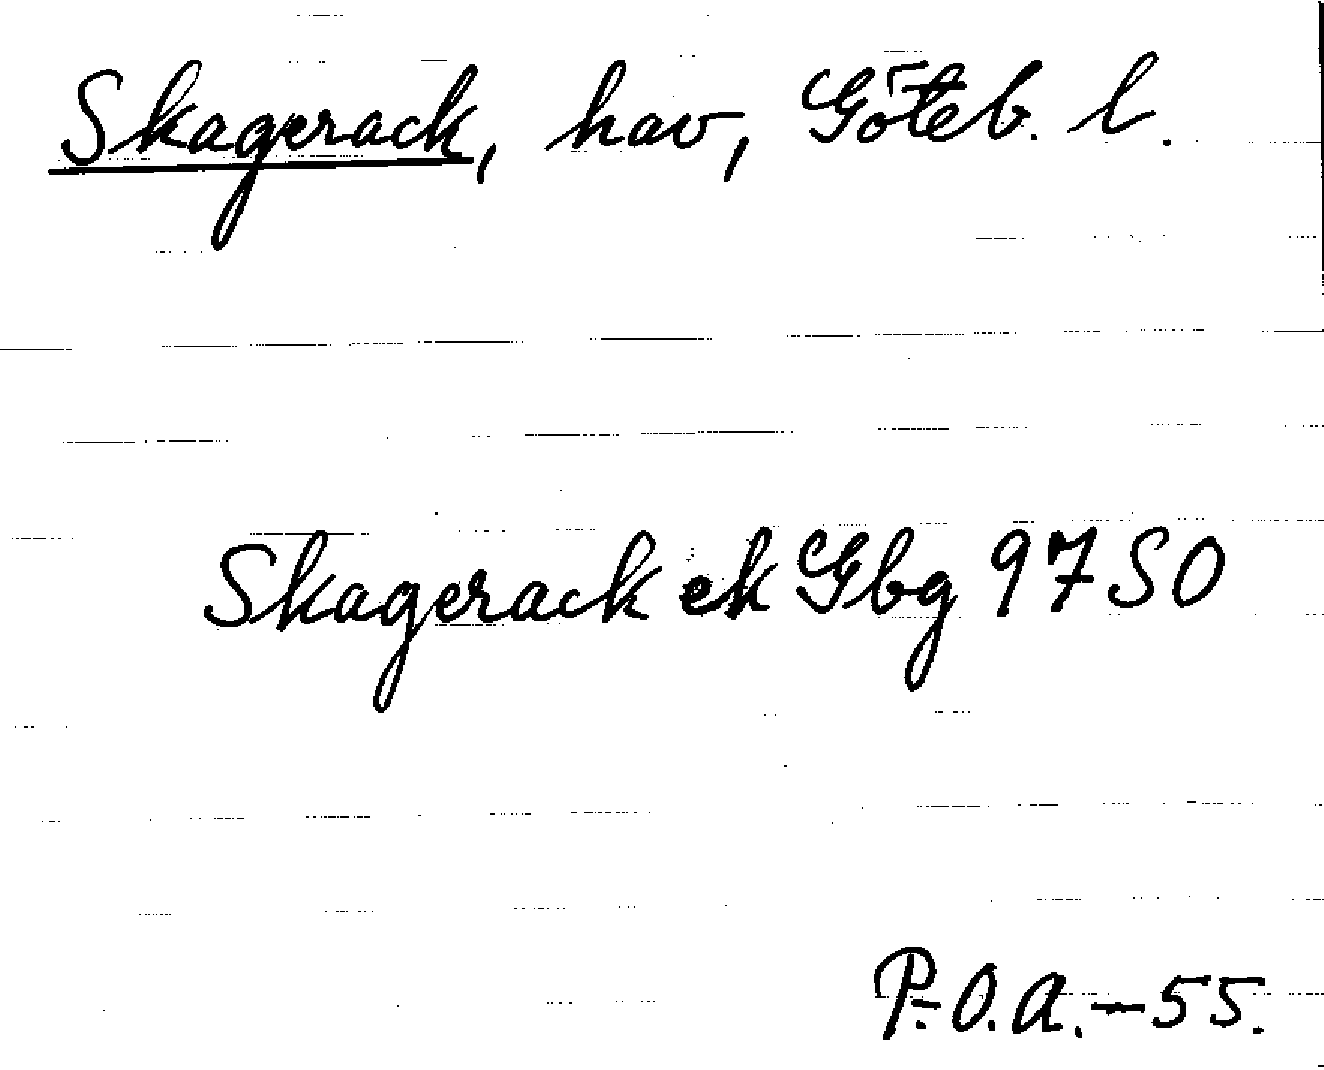 Skagerack, hav, Göteb. l.
Skagerack ek Gbg 97 SO
P.O.A. - 55.